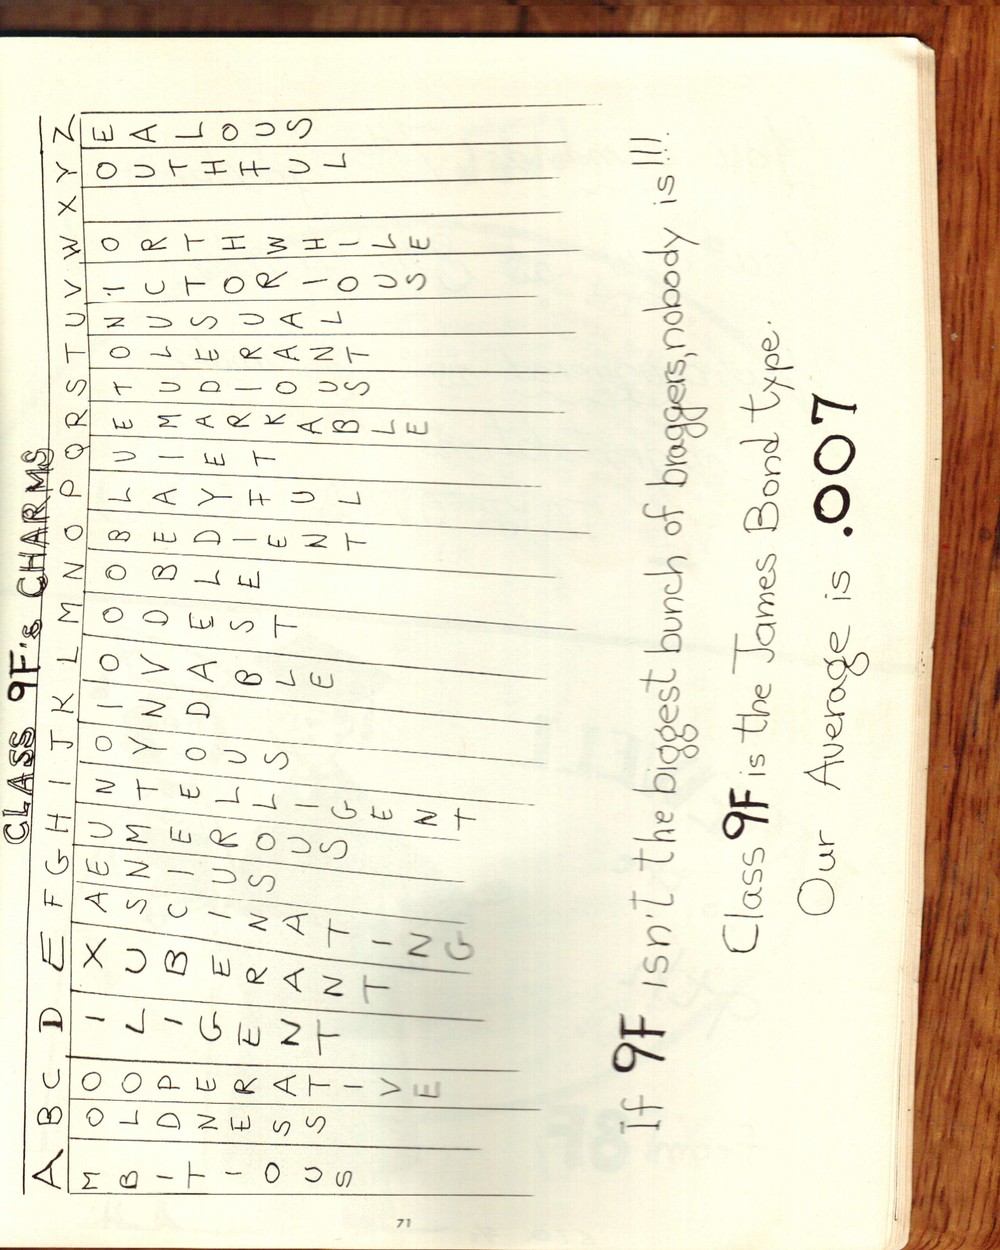 CLASS 9F's CHARMS
AMBITIOUS
BOLDNESS
COOPERATIVE
DILIGENT
EXUBERANT
FASCINATING
GENIUS
HUMEROUS
INTELLIGENT
JOYOUS
KIND
LOVABLE
MODEST
NOBLE
OBEDIENT
PLAYFUL
QUIET
REMARKABLE
STUDIOUS
TOLERANT
UNUSUAL
VICTORIOUS
WORTHWHILE
X
YOUTHFUL
ZEALOUS
If 9F isn't the biggest bunch of braggers, nobody is!!!
Class 9F is the James Bond type.
Our Average is .007
71